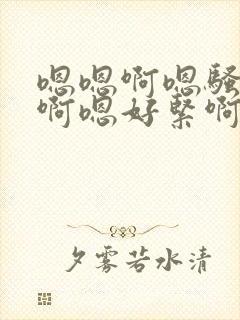 嗯嗯啊嗯骚
啊嗯好紧啊
夕雾若水清